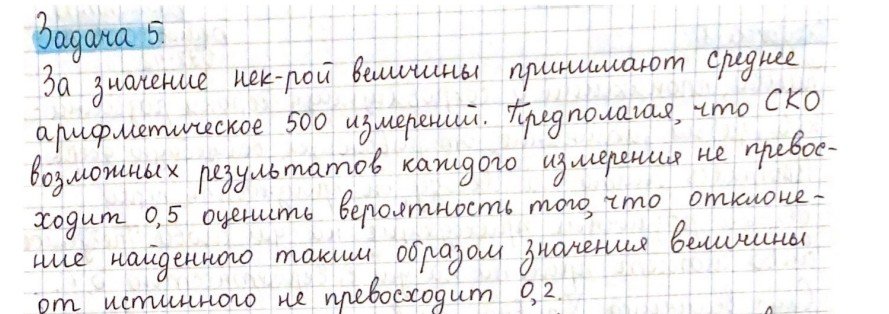 Задача 5.
За значение нек-рой величины принимают среднее
арифметическое 500 измерений. Предполагая, что СКО
возможных результатов каждого измерения не превос-
ходит 0,5 оценить вероятность того, что отклоне-
ние найденного таким образом значения величины
от истинного не превосходит 0,2.